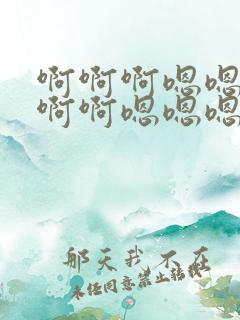 啊啊啊嗯嗯
啊啊嗯嗯嗯
那天我不在
未经同意禁止转载